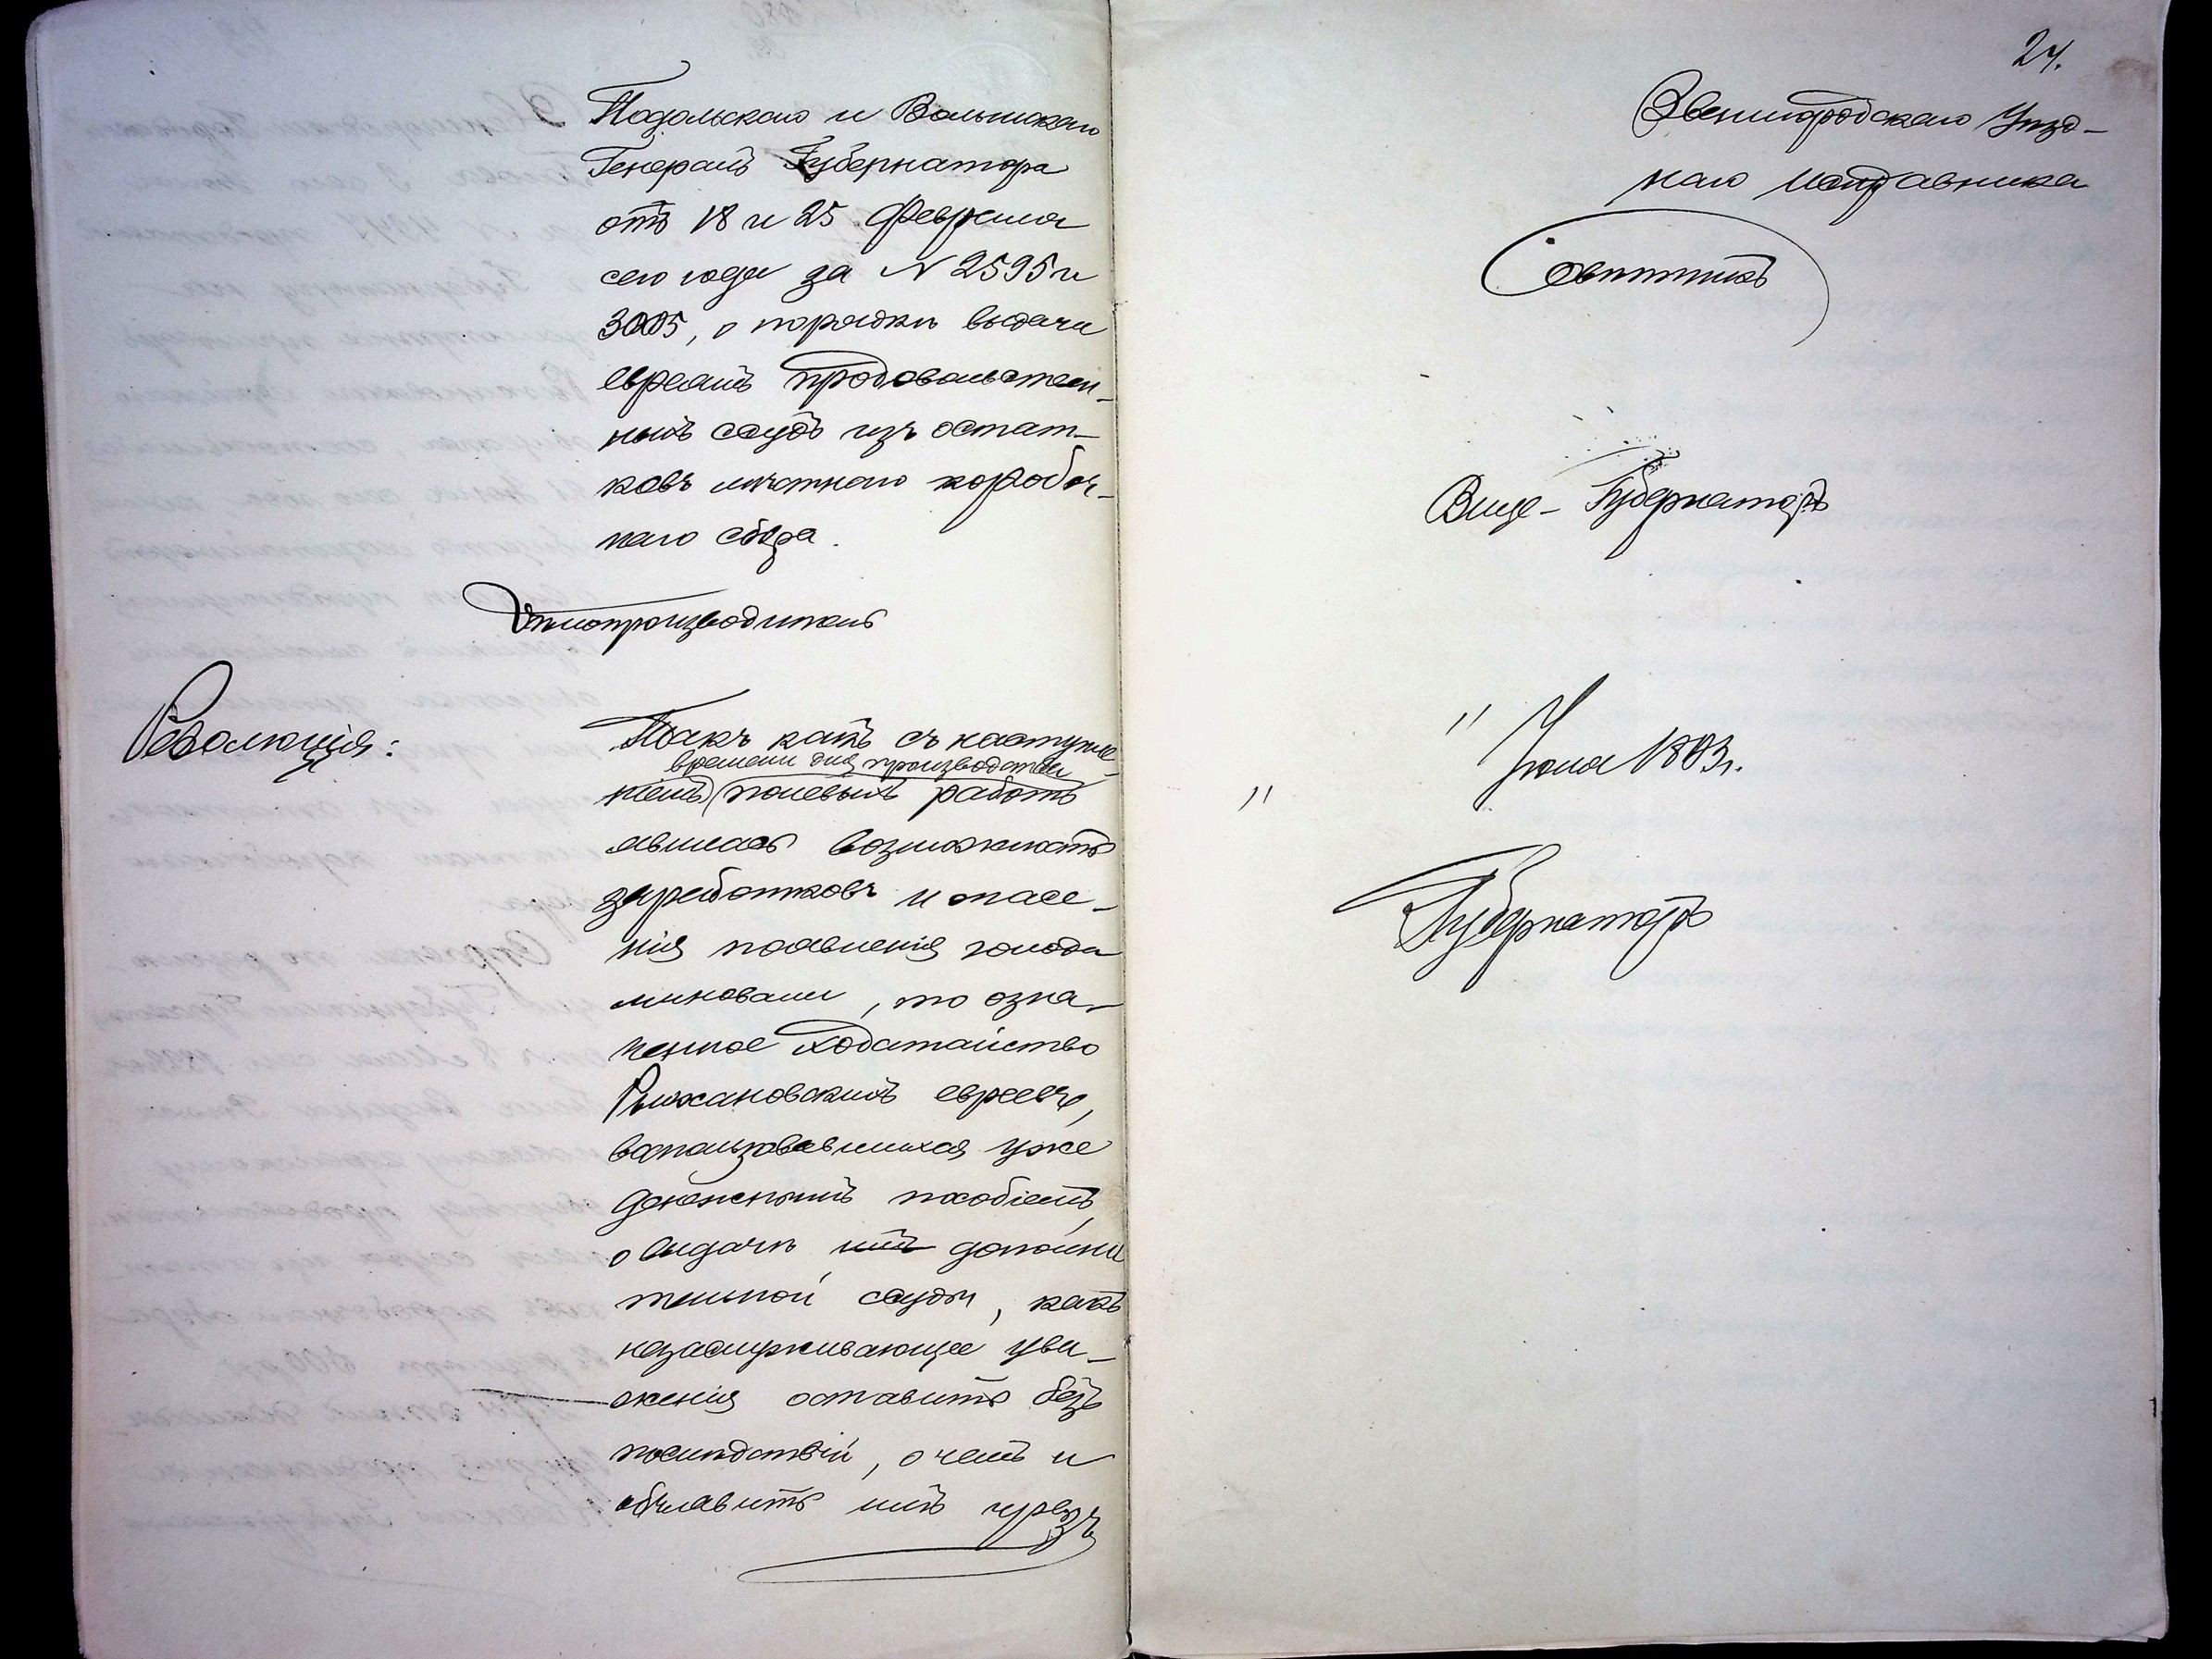 Подольскаго и Волынскаго
Генералъ Губернатора
отъ 18 и 25 Февраля
сего года за N 2595 и
3005, о порядкѣ выдачи
евреямъ продовольствен-
ныхъ ссудъ изъ остат-
ковъ мѣстнаго коробоч-
наго сбора.
Дѣлопроизводитель
Резолюція:
Такъ какъ съ наступле-
времени для производства
ніемъ полевыхъ работъ
явилась возможность
заработковъ и опасе-
нія появленія голода
миновали, то озна-
ченное ходатайство
Рыжановскихъ евреевъ,
воспользовавшихся уже
денежнымъ пособіемъ,
о выдачѣ имъ дополни
тельной ссуды, какъ
незаслуживающее ува-
женія оставить безъ
послѣдствій, о чемъ и
объявить имъ чрезъ
24.
Звенигородскаго Уѣзд-
наго Исправника
Совѣтникъ
Вице-Губернаторъ
" " Іюня 1893 г.
Губернаторъ